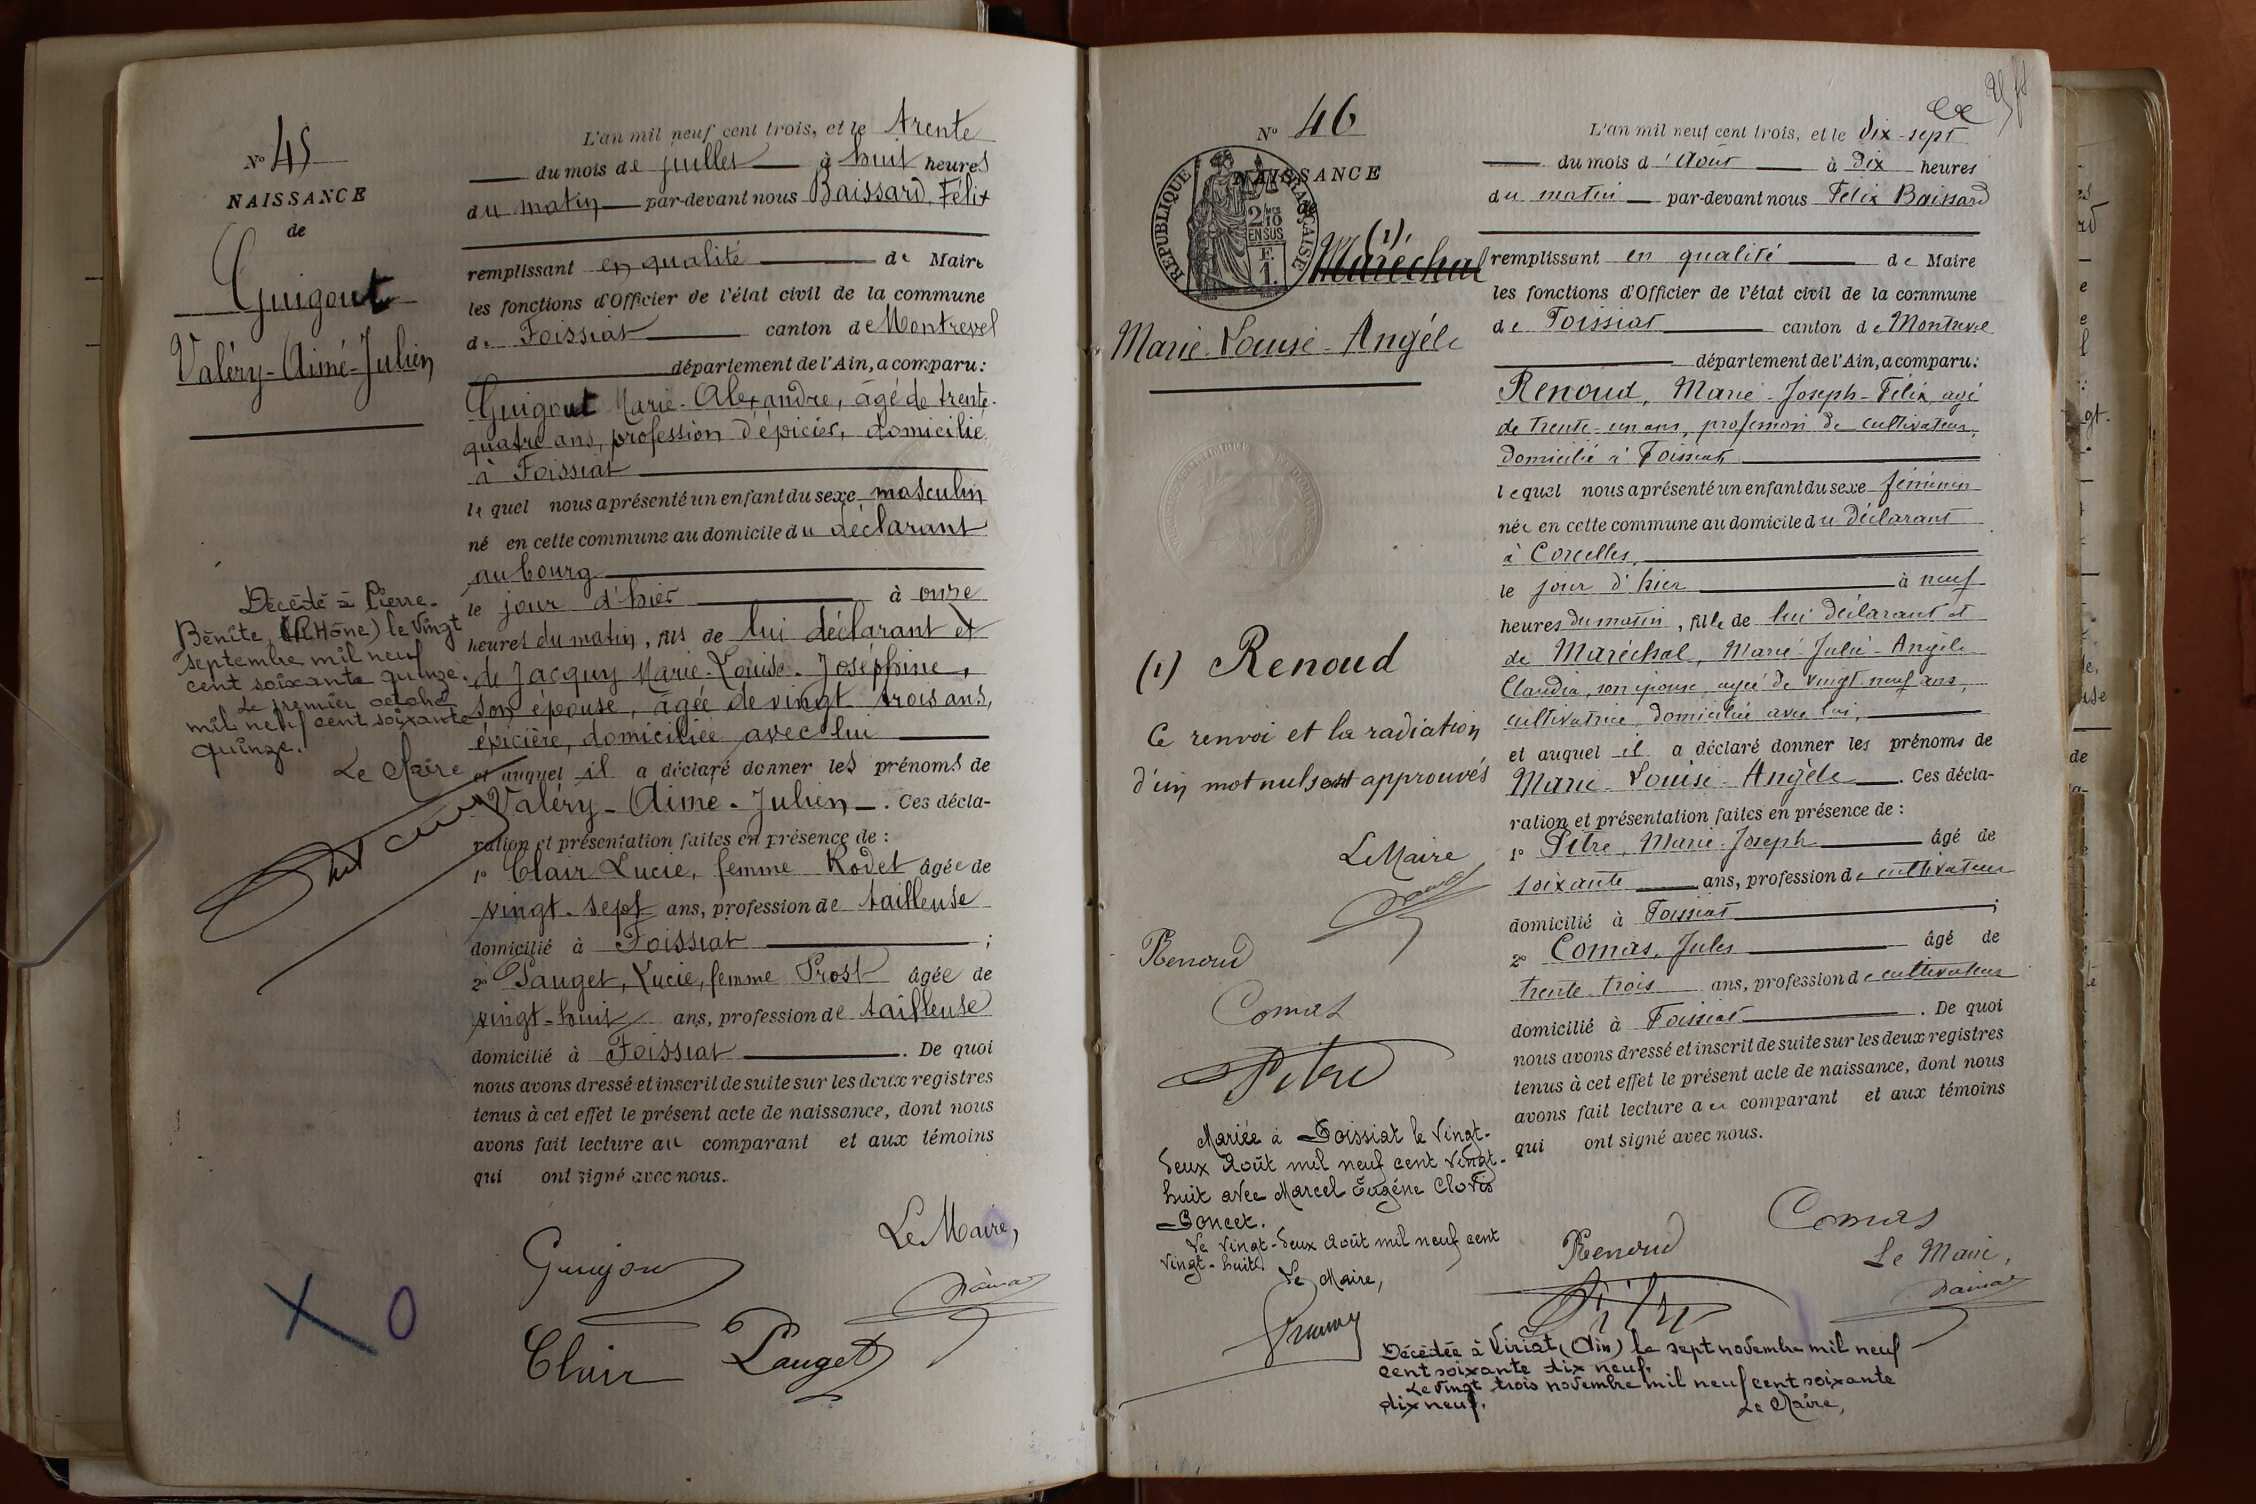 L'an mil neuf cent trois, et le trente
N° 45
du mois de juillet à huit heures
NAISSANCE
du matin par-devant nous Baissard, Félix
de
Guigout
remplissant en qualité de Maire
les fonctions d'Officier de l'état civil de la commune
de Foissiat canton de Montrevel
Valéry-Aimé-Julien
département de l'Ain, a comparu:
Guigout Marie-Alexandre, âgé de trente-
quatre ans, profession d'épicier, domicilié
à Foissiat
lequel nous a présenté un enfant du sexe masculin
né en cette commune au domicile du déclarant
au bourg
le jour d'hier à onze
heures du matin, fils de lui déclarant et
de Jacquy Marie-Louise-Joséphine,
son épouse, âgée de vingt trois ans,
épicière, domiciliée avec lui
et auquel il a déclaré donner les prénoms de
Valéry-Aimé-Julien. Ces décla-
ration et présentation faites en présence de :
1° Clair Lucie, femme Rodet âgée de
vingt-sept ans, profession de tailleuse
domicilié à Foissiat ;
2° Pauget, Lucie, femme Prost âgée de
vingt-huit ans, profession de tailleuse
domicilié à Foissiat. De quoi
nous avons dressé et inscrit de suite sur les deux registres
tenus à cet effet le présent acte de naissance, dont nous
avons fait lecture au comparant et aux témoins
qui ont signé avec nous.
Décédé à Pierre-
Bénite (Rhône) le vingt
septembre mil neuf
cent soixante quinze.
Le premier octobre
mil neuf cent soixante
quinze.
Le Maire
Le Maire,
Guigout
Clair Pauget
X 0
N° 46
NAISSANCE
de
RÉPUBLIQUE FRANÇAISE
2/10
EN SUS
F.
1.
(1)
Maréchal
Marie-Louise-Angèle
L'an mil neuf cent trois, et le dix-sept
du mois d'Août à dix heures
du matin par-devant nous Félix Baissard
remplissant en qualité de Maire
les fonctions d'Officier de l'état civil de la commune
de Foissiat canton de Montrevel
département de l'Ain, a comparu:
Renoud, Marie-Joseph-Félix, agé
de trente-un ans, profession de cultivateur,
domicilié à Foissiat,
lequel nous a présenté un enfant du sexe féminin
née en cette commune au domicile du déclarant
à Corcelles,
le jour d'hier à neuf
heures du matin, fille de lui déclarant et
de Maréchal, Marie-Julie-Angèle
Claudia, son épouse, agée de vingt neuf ans,
cultivatrice, domiciliée avec lui,
et auquel il a déclaré donner les prénoms de
Marie-Louise-Angèle. Ces décla-
ration et présentation faites en présence de :
1° Pitre, Marie-Joseph âgé de
soixante ans, profession de cultivateur
domicilié à Foissiat ;
2° Comas, Jules âgé de
trente-trois ans, profession de cultivateur
domicilié à Foissiat. De quoi
nous avons dressé et inscrit de suite sur les deux registres
tenus à cet effet le présent acte de naissance, dont nous
avons fait lecture au comparant et aux témoins
qui ont signé avec nous.
(1) Renoud
Ce renvoi et la radiation
d'un mot nul sont approuvés
Le Maire
Renoud
Comas
Pitre
Mariée à Foissiat le vingt-
deux Août mil neuf cent vingt-
huit avec Marcel Eugène Clovis
Poncet.
Le vingt-deux Août mil neuf cent
vingt-huit
Le Maire,
Comas
Renoud
Le Maire,
Pitre
Décédée à Viriat (Ain) le sept novembre mil neuf
cent soixante dix neuf.
Le vingt trois novembre mil neuf cent soixante
dix neuf.
Le Maire,